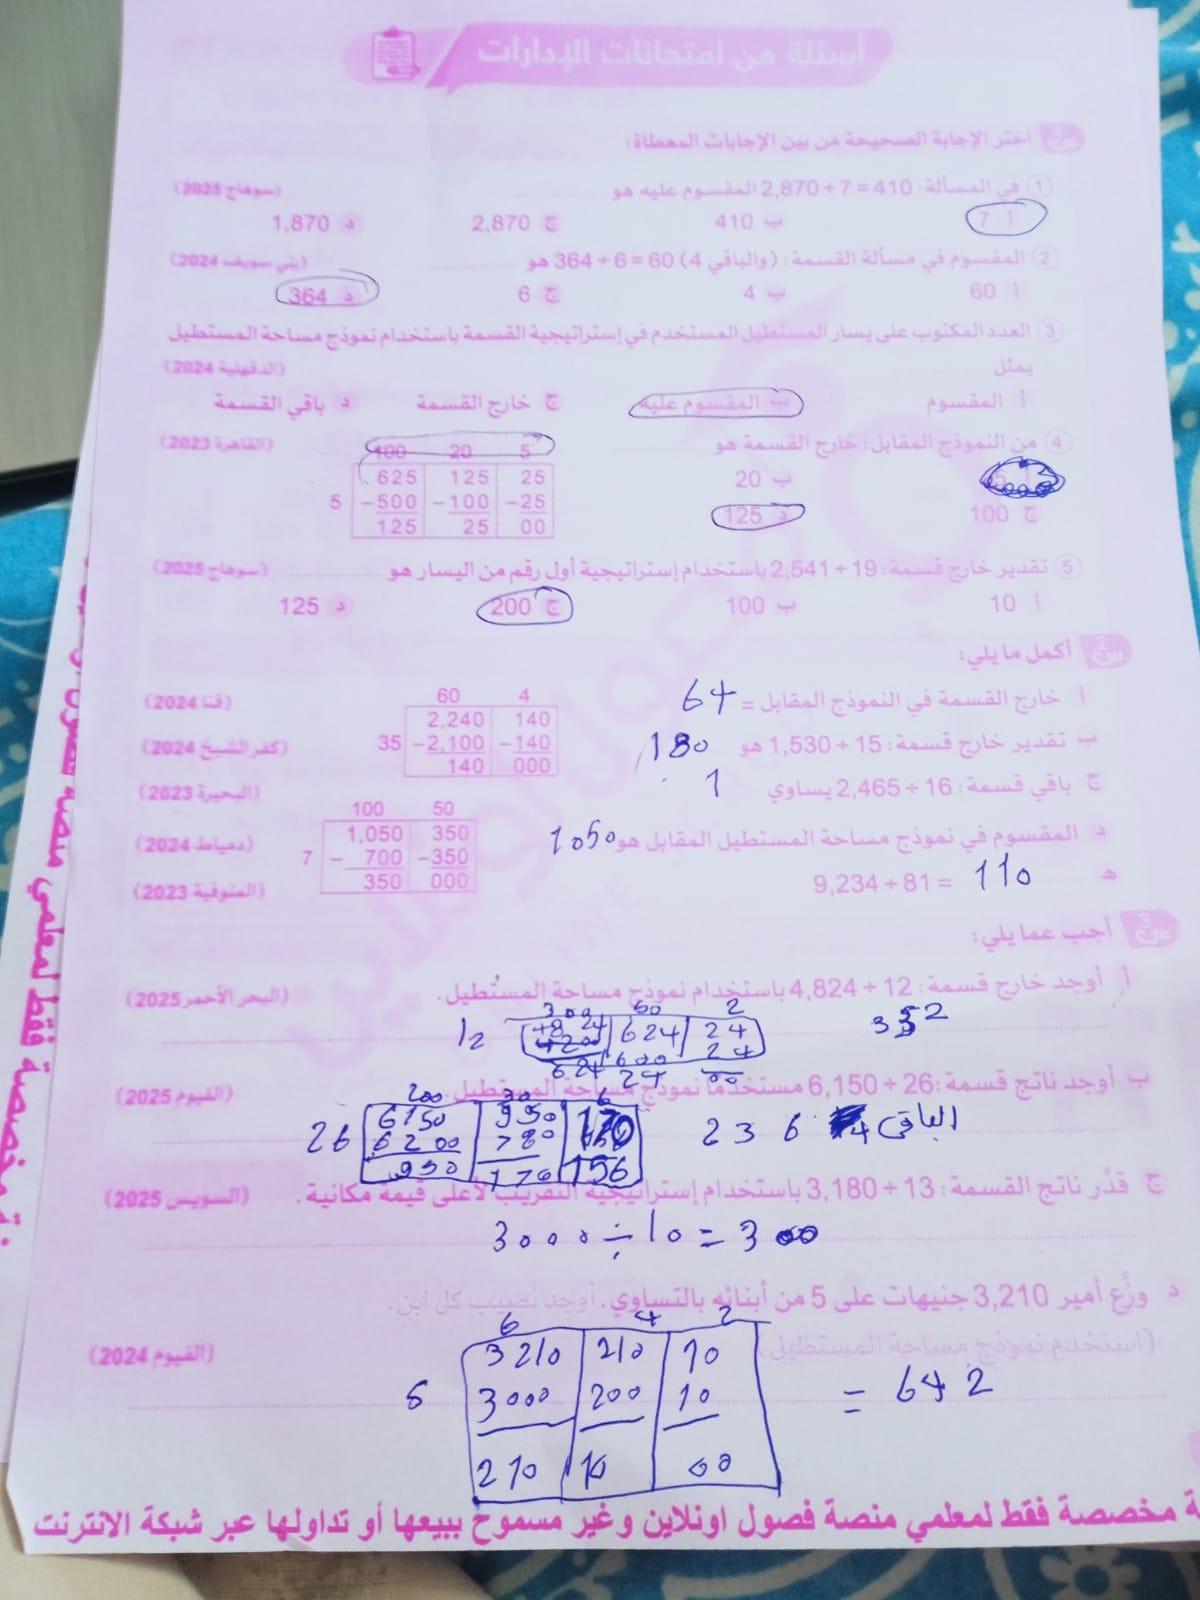 أسئلة من امتحانات الإدارات
س1 اختر الإجابة الصحيحة من بين الإجابات المعطاة:
1 في المسألة: 410 = 7 ÷ 2,870 المقسوم عليه هو (سوهاج 2025)
أ 7 ب 410 ج 2,870 د 1,870
2 المقسوم في مسألة القسمة: (والباقي 4) 60 = 6 ÷ 364 هو (بني سويف 2024)
أ 60 ب 4 ج 6 د 364
3 العدد المكتوب على يسار المستطيل المستخدم في إستراتيجية القسمة باستخدام نموذج مساحة المستطيل
يمثل (الدقهلية 2024)
أ المقسوم ب المقسوم عليه ج خارج القسمة د باقي القسمة
4 من النموذج المقابل: خارج القسمة هو (القاهرة 2023)
100 20 5
أ ب 20
625 125 25
5 −500 −100 −25
ج 100 د 125
125 25 00
5 تقدير خارج قسمة: 19 ÷ 2,541 باستخدام إستراتيجية أول رقم من اليسار هو (سوهاج 2025)
أ 10 ب 100 ج 200 د 125
س2 أكمل ما يلي:
أ خارج القسمة في النموذج المقابل = 64 (قنا 2024)
60 4
2,240 140
35 −2,100 −140
140 000
ب تقدير خارج قسمة: 15 ÷ 1,530 هو 180 (كفر الشيخ 2024)
ج باقي قسمة: 16 ÷ 2,465 يساوي 1 (البحيرة 2023)
د المقسوم في نموذج مساحة المستطيل المقابل هو 1050 (دمياط 2024)
100 50
1,050 350
7 − 700 −350
350 000
هـ 9,234 ÷ 81 = 110 (المنوفية 2023)
س3 أجب عما يلي:
أ أوجد خارج قسمة: 12 ÷ 4,824 باستخدام نموذج مساحة المستطيل. (البحر الأحمر 2025)
2
12 624 24
600 24
624 24 00
ب أوجد ناتج قسمة: 26 ÷ 6,150 مستخدمًا نموذج مساحة المستطيل. (الفيوم 2025)
200 30 6
6150 950
26 780
950 156
236 الباقي
ج قدِّر ناتج القسمة: 13 ÷ 3,180 باستخدام إستراتيجية التقريب لأعلى قيمة مكانية. (السويس 2025)
3000 ÷ 10 = 300
د وزَّع أمير 3,210 جنيهات على 5 من أبنائه بالتساوي. أوجد نصيب كل ابن.
(استخدم نموذج مساحة المستطيل) (الفيوم 2024)
6 4 2
3210 210 10
5 3000 200 10
210 10 00
= 642
مخصصة فقط لمعلمي منصة فصول اونلاين وغير مسموح ببيعها أو تداولها عبر شبكة الانترنت